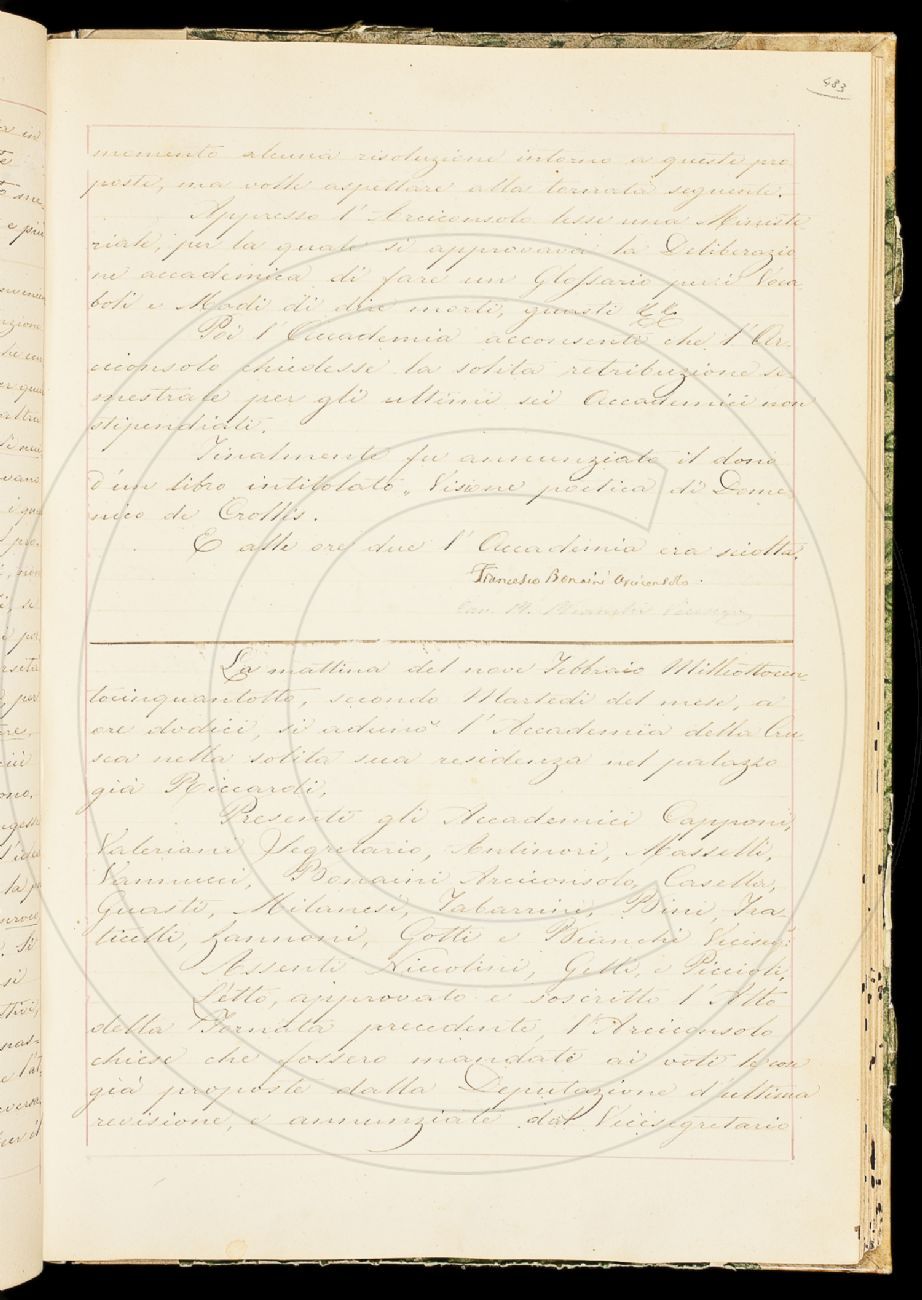 483
momento alcuna risoluzione intorno a queste pro
poste, ma volle aspettare alla tornata seguente.
Appresso l'Arciconsolo lesse una Ministe
riale, per la quale si approvava la Deliberazio
ne accademica di fare un Glossario per i Voca
boli e Modi di dire morti, guasti &c &c
Poi l'Accademia acconsentì che l'Ar
ciconsolo chiedesse la solita retribuzione se
mestrale per gli ultimi sei Accademici non
stipendiati.
Finalmente fu annunziato il dono
d'un libro intitolato „ Visione poetica di Dome
nico de Crollis.
E alle ore due l'Accademia era sciolta.
Francesco Bonaini Arciconsolo.
Bianchi Vicesegr
La mattina del nove Febbraio Milleottocen
tocinquantotto, secondo Martedì del mese, a
ore dodici, si adunò l'Accademia della Cru-
sca nella solita sua residenza nel palazzo
già Riccardi,
Presenti gli Accademici Capponi,
Valeriani Segretario, Antinori, Masselli,
Vannucci, Bonaini Arciconsolo, Casella,
Guasti, Milanesi, Tabarrini, Bini, Fra
ticelli, Zannoni, Gotti e Bianchi Viceseg:
Assenti Niccolini, Gelli, e Piccioli,
Letto, approvato e soscritto l'Atto
della Tornata precedente, l'Arciconsolo
chiese che fossero mandate ai voti le cose
già proposte dalla Deputazione d'ultima
revisione, e annunziate dal Vicesegretario